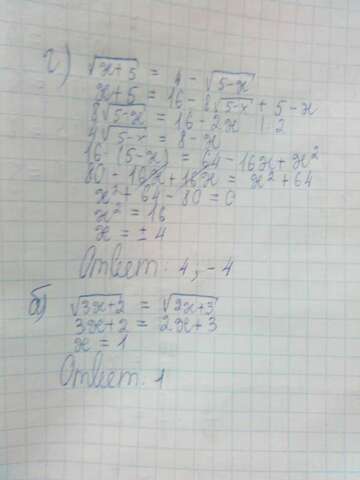 г) √x+5 = 4 - √5-x
x+5 = 16 - 8√5-x + 5 - x
8√5-x = 16 - 2x | : 2
4√5-x = 8 - x
16 · (5-x) = 64 - 16x + x²
80 - 16x + 16x = x² + 64
x² + 64 - 80 = 0
x² = 16
x = ± 4
Ответ: 4, -4
б) √3x+2 = √2x+3
3x+2 = 2x+3
x = 1
Ответ: 1